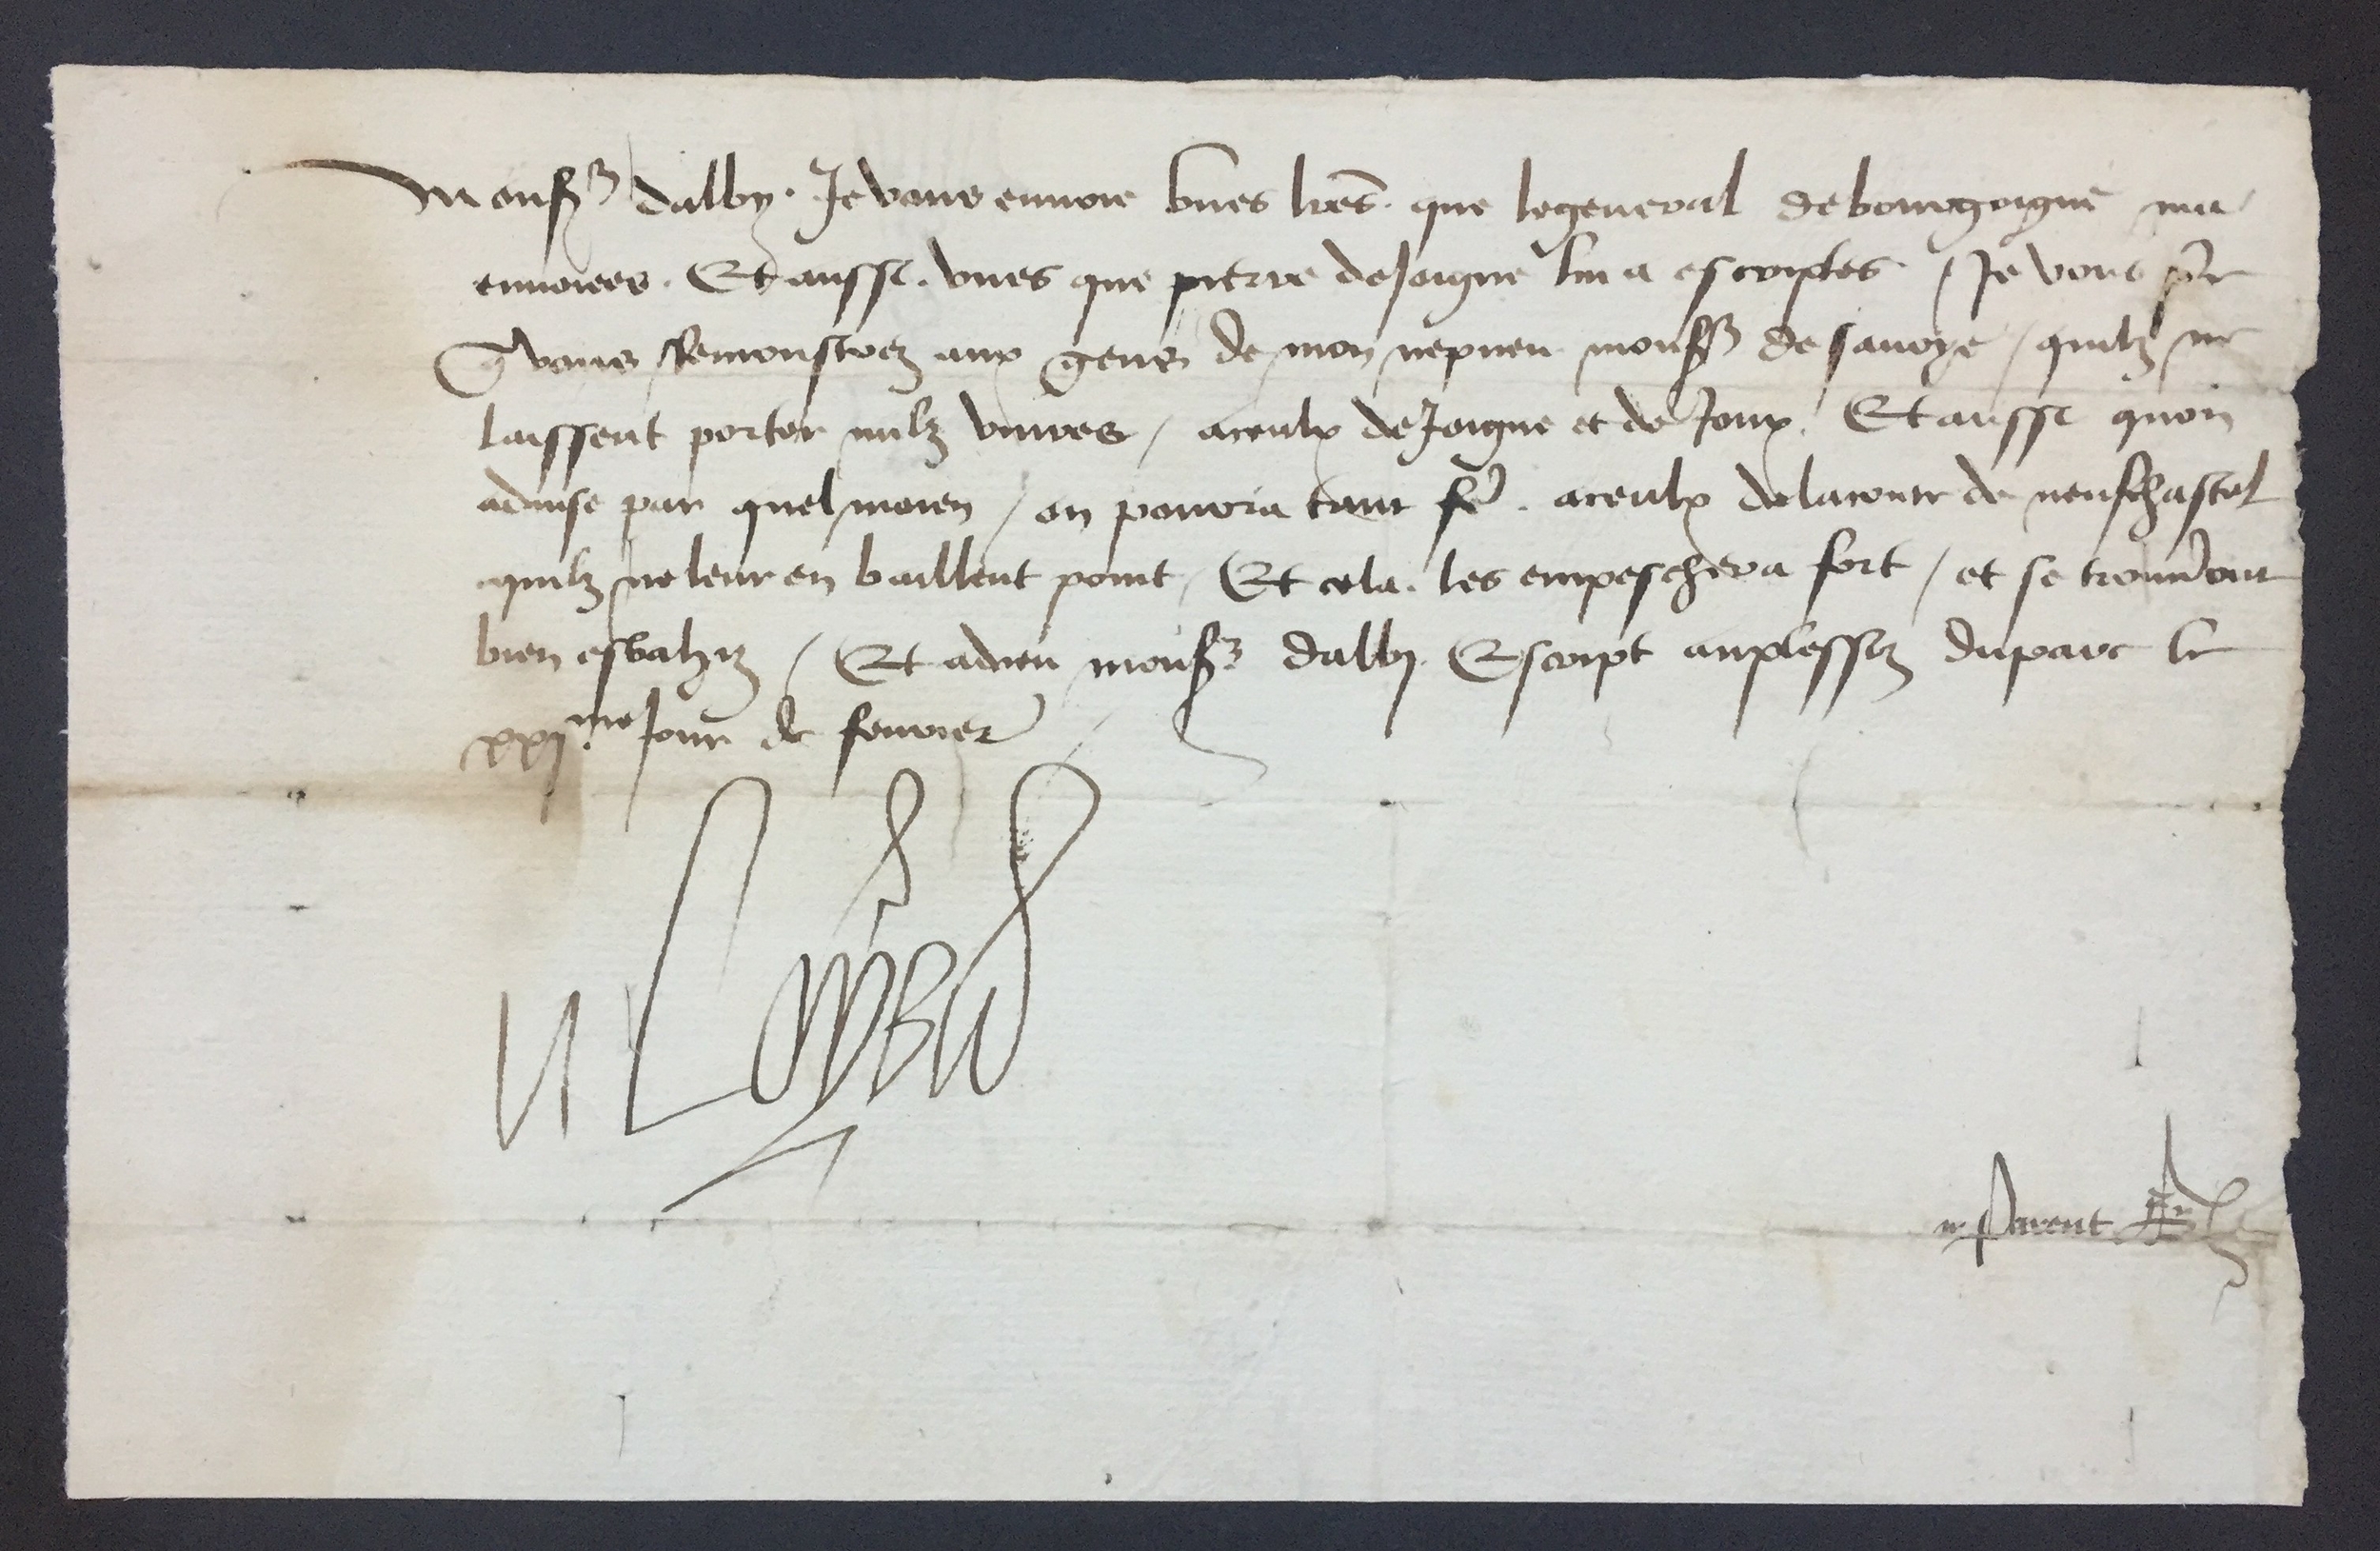 Monsr dalby. Je vous envoie unes lres. que le general de bourgoigne ma
envoiees. Et aussi. unes que pierre de Joigne lui a escriptes / Je vous pri
q vous Remonstrez aux gens de mon nepueu monsr de savoye / quilz ne
laissent porter nulz vivres / a ceulx de Joigne et de Joux. Et aussi quon
advise par quel moien / on pourra tant fe. a ceulx de la conte de neufchastel
quilz ne leur en baillent point / Et cela. les empeschera fort / et se trouveront
bien esbahiz / Et adieu monsr dalby. Escript au plessiz du parc le
xxjme Jour de fevrier
Loys
Parent